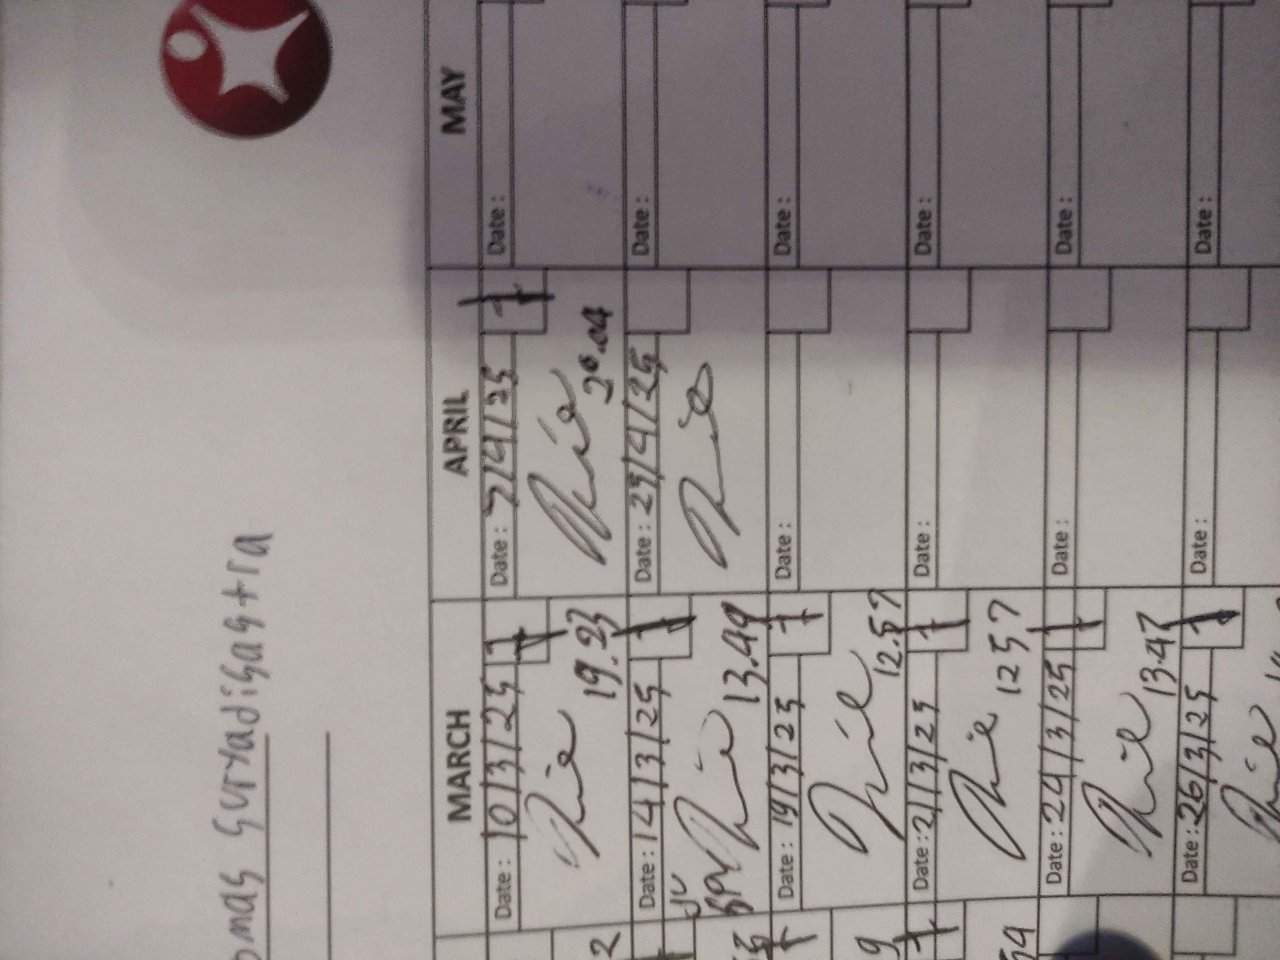 omas suryadisastra
MARCH APRIL MAY
Date: 10/3/25 Date: 7/4/25 Date:
19.23 20.04
Date: 14/3/25 Date: 25/4/25 Date:
13.49
Date: 19/3/25 Date: Date:
12.57
Date: 21/3/25 Date: Date:
12 57
Date: 24/3/25 Date: Date:
13.47
Date: 26/3/25 Date: Date: